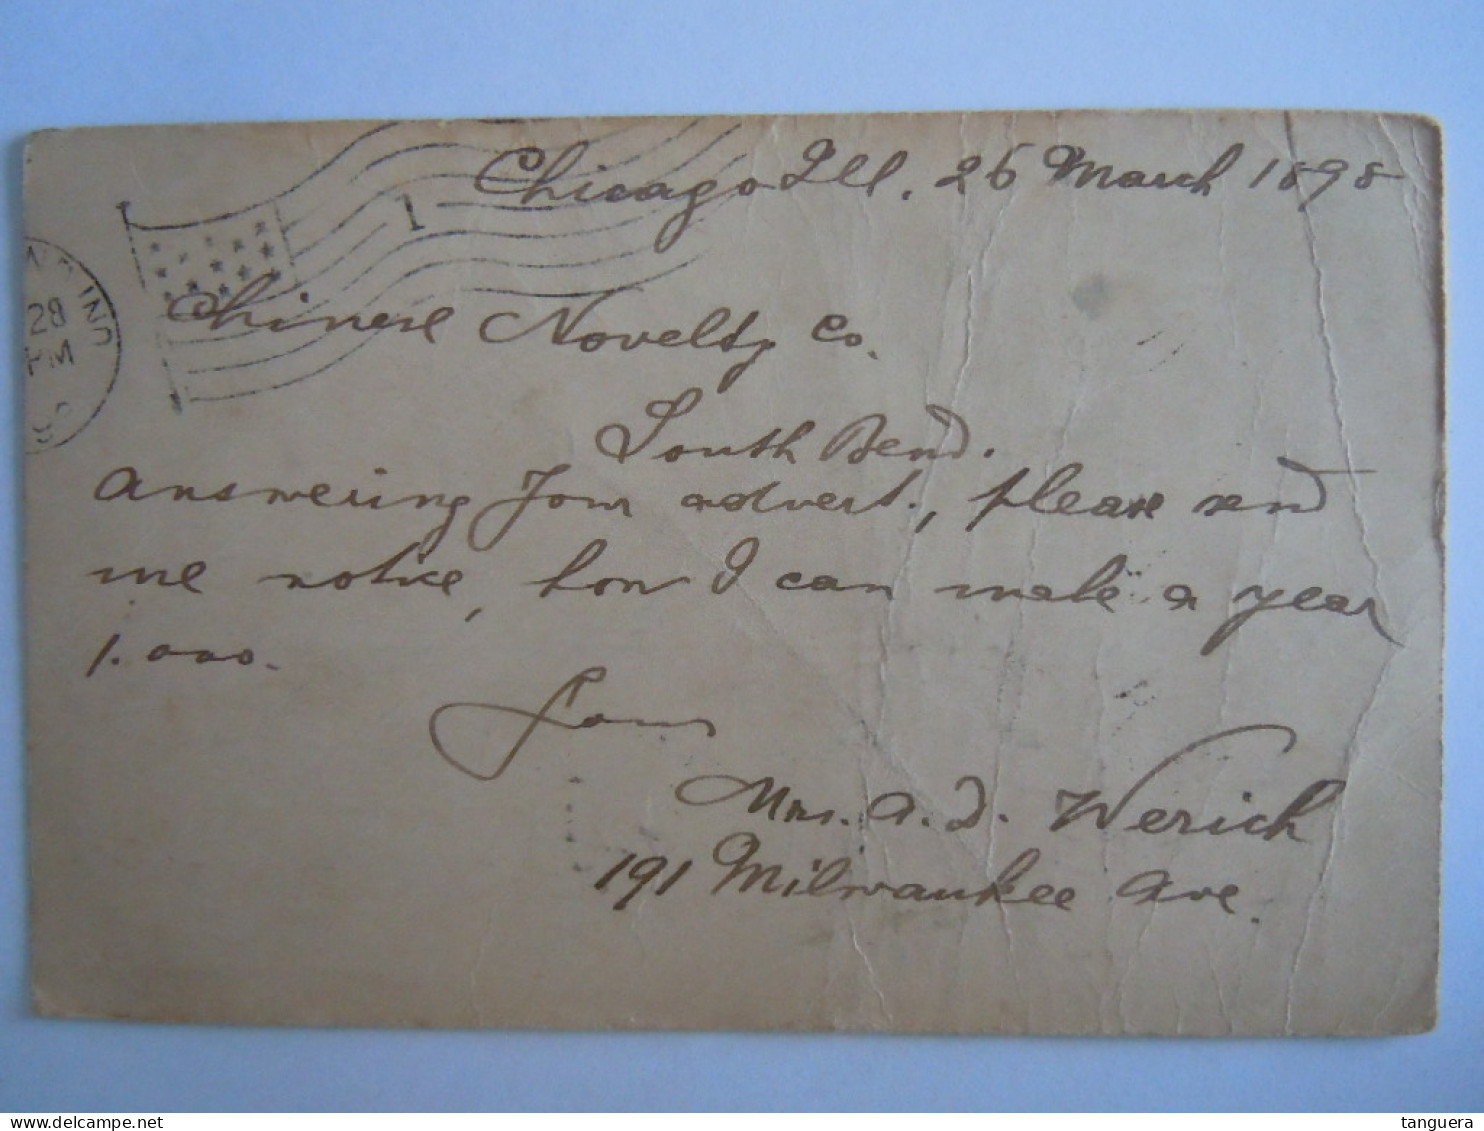 Chicago Ill. 26 March 1898
1
Chinese Novelty Co.
IND
28
PM
South Bend.
Answering Your advert., please send
me notice, how I can make a year
1.000.
Yours
Mrs. A. D. Werich
191 Milwaukee Ave.
www.delcampe.net
tanguera